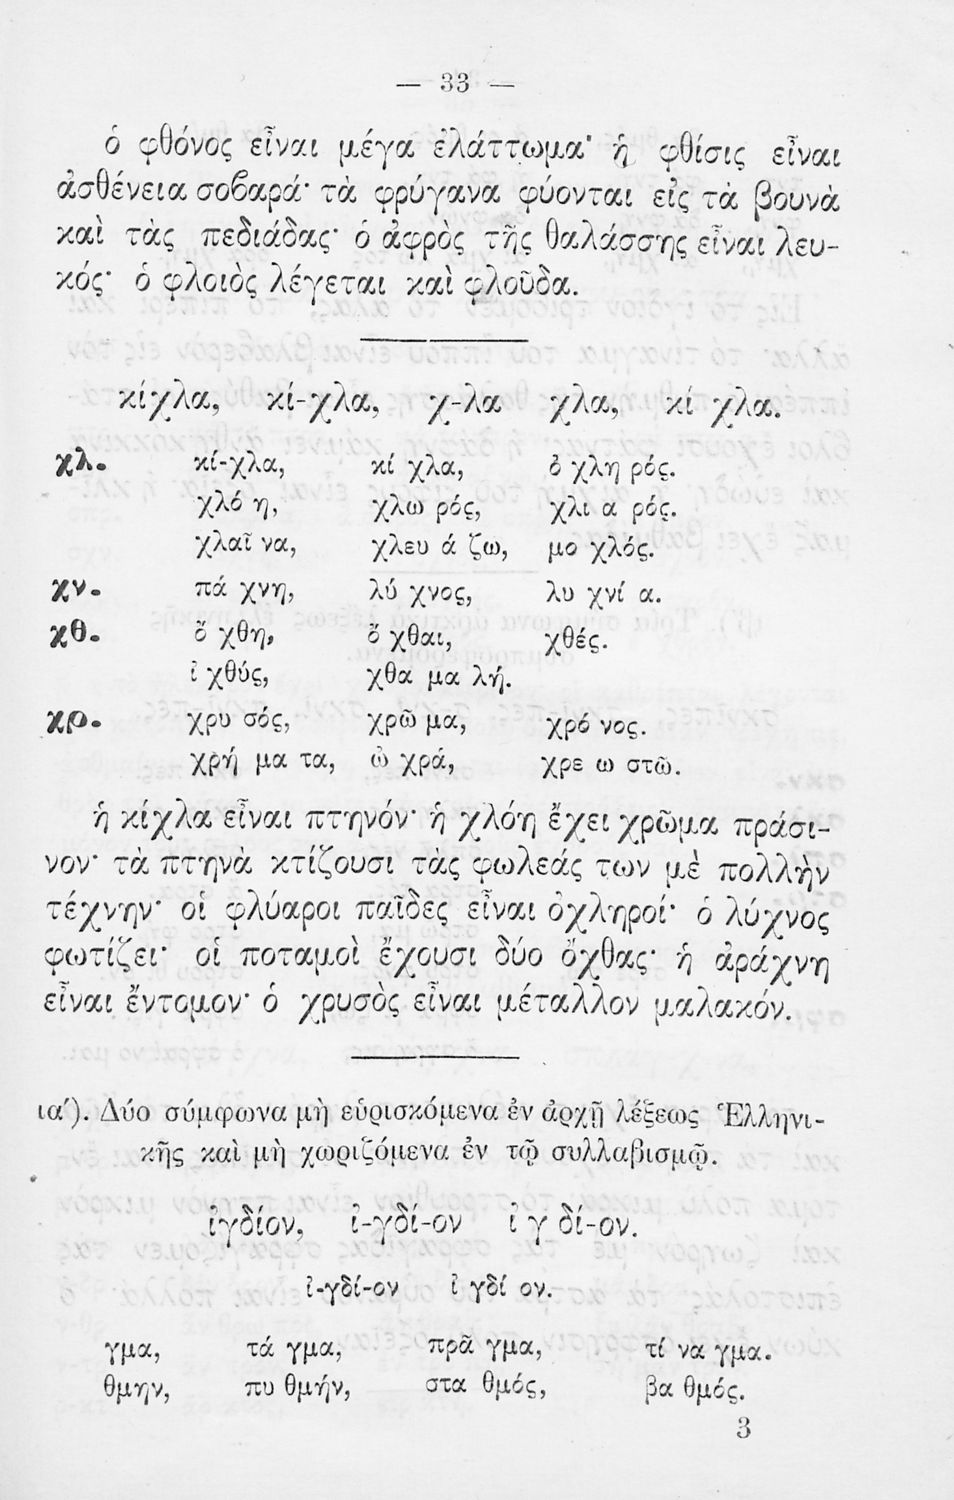 — 33 —
ὁ φθόνος εἶναι μέγα ἐλάττωμα· ἡ φθίσις εἶναι
ἀσθένεια σοβαρά· τὰ φρύγανα φύονται εἰς τὰ βουνὰ
καὶ τὰς πεδιάδας· ὁ ἀφρὸς τῆς θαλάσσης εἶναι λευ-
κός· ὁ φλοιὸς λέγεται καὶ φλοῦδα.
κίχλα, κί-χλα, χ-λα χλα, κί χλα.
χλ. κί-χλα, κί χλα, ὀ χλη ρός.
χλό η, χλω ρός, χλι α ρός.
χλαῖ να, χλευ ά ζω, μο χλός.
χν. πά χνη, λύ χνος, λυ χνί α.
χθ. ὄ χθη, ὄ χθαι, χθές.
ἰ χθύς, χθα μα λή.
χρ. χρυ σός, χρῶ μα, χρό νος.
χρή μα τα, ὠ χρά, χρε ω στῶ.
ἡ κίχλα εἶναι πτηνόν· ἡ χλόη ἔχει χρῶμα πράσι-
νον· τὰ πτηνὰ κτίζουσι τὰς φωλεάς των μὲ πολλὴν
τέχνην· οἱ φλύαροι παῖδες εἶναι ὀχληροί· ὁ λύχνος
φωτίζει· οἱ ποταμοὶ ἔχουσι δύο ὄχθας· ἡ ἀράχνη
εἶναι ἔντομον· ὁ χρυσὸς εἶναι μέταλλον μαλακόν.
ια΄). Δύο σύμφωνα μὴ εὑρισκόμενα ἐν ἀρχῇ λέξεως Ἑλληνι-
κῆς καὶ μὴ χωριζόμενα ἐν τῷ συλλαβισμῷ.
ἰγδίον, ἰ-γδί-ον ἰ γ δί-ον.
ἰ-γδί-ον ἰ γδί ον.
γμα, τά γμα, πρᾶ γμα, τί να γμα.
θμην, πυ θμήν, στα θμός, βα θμός.
3